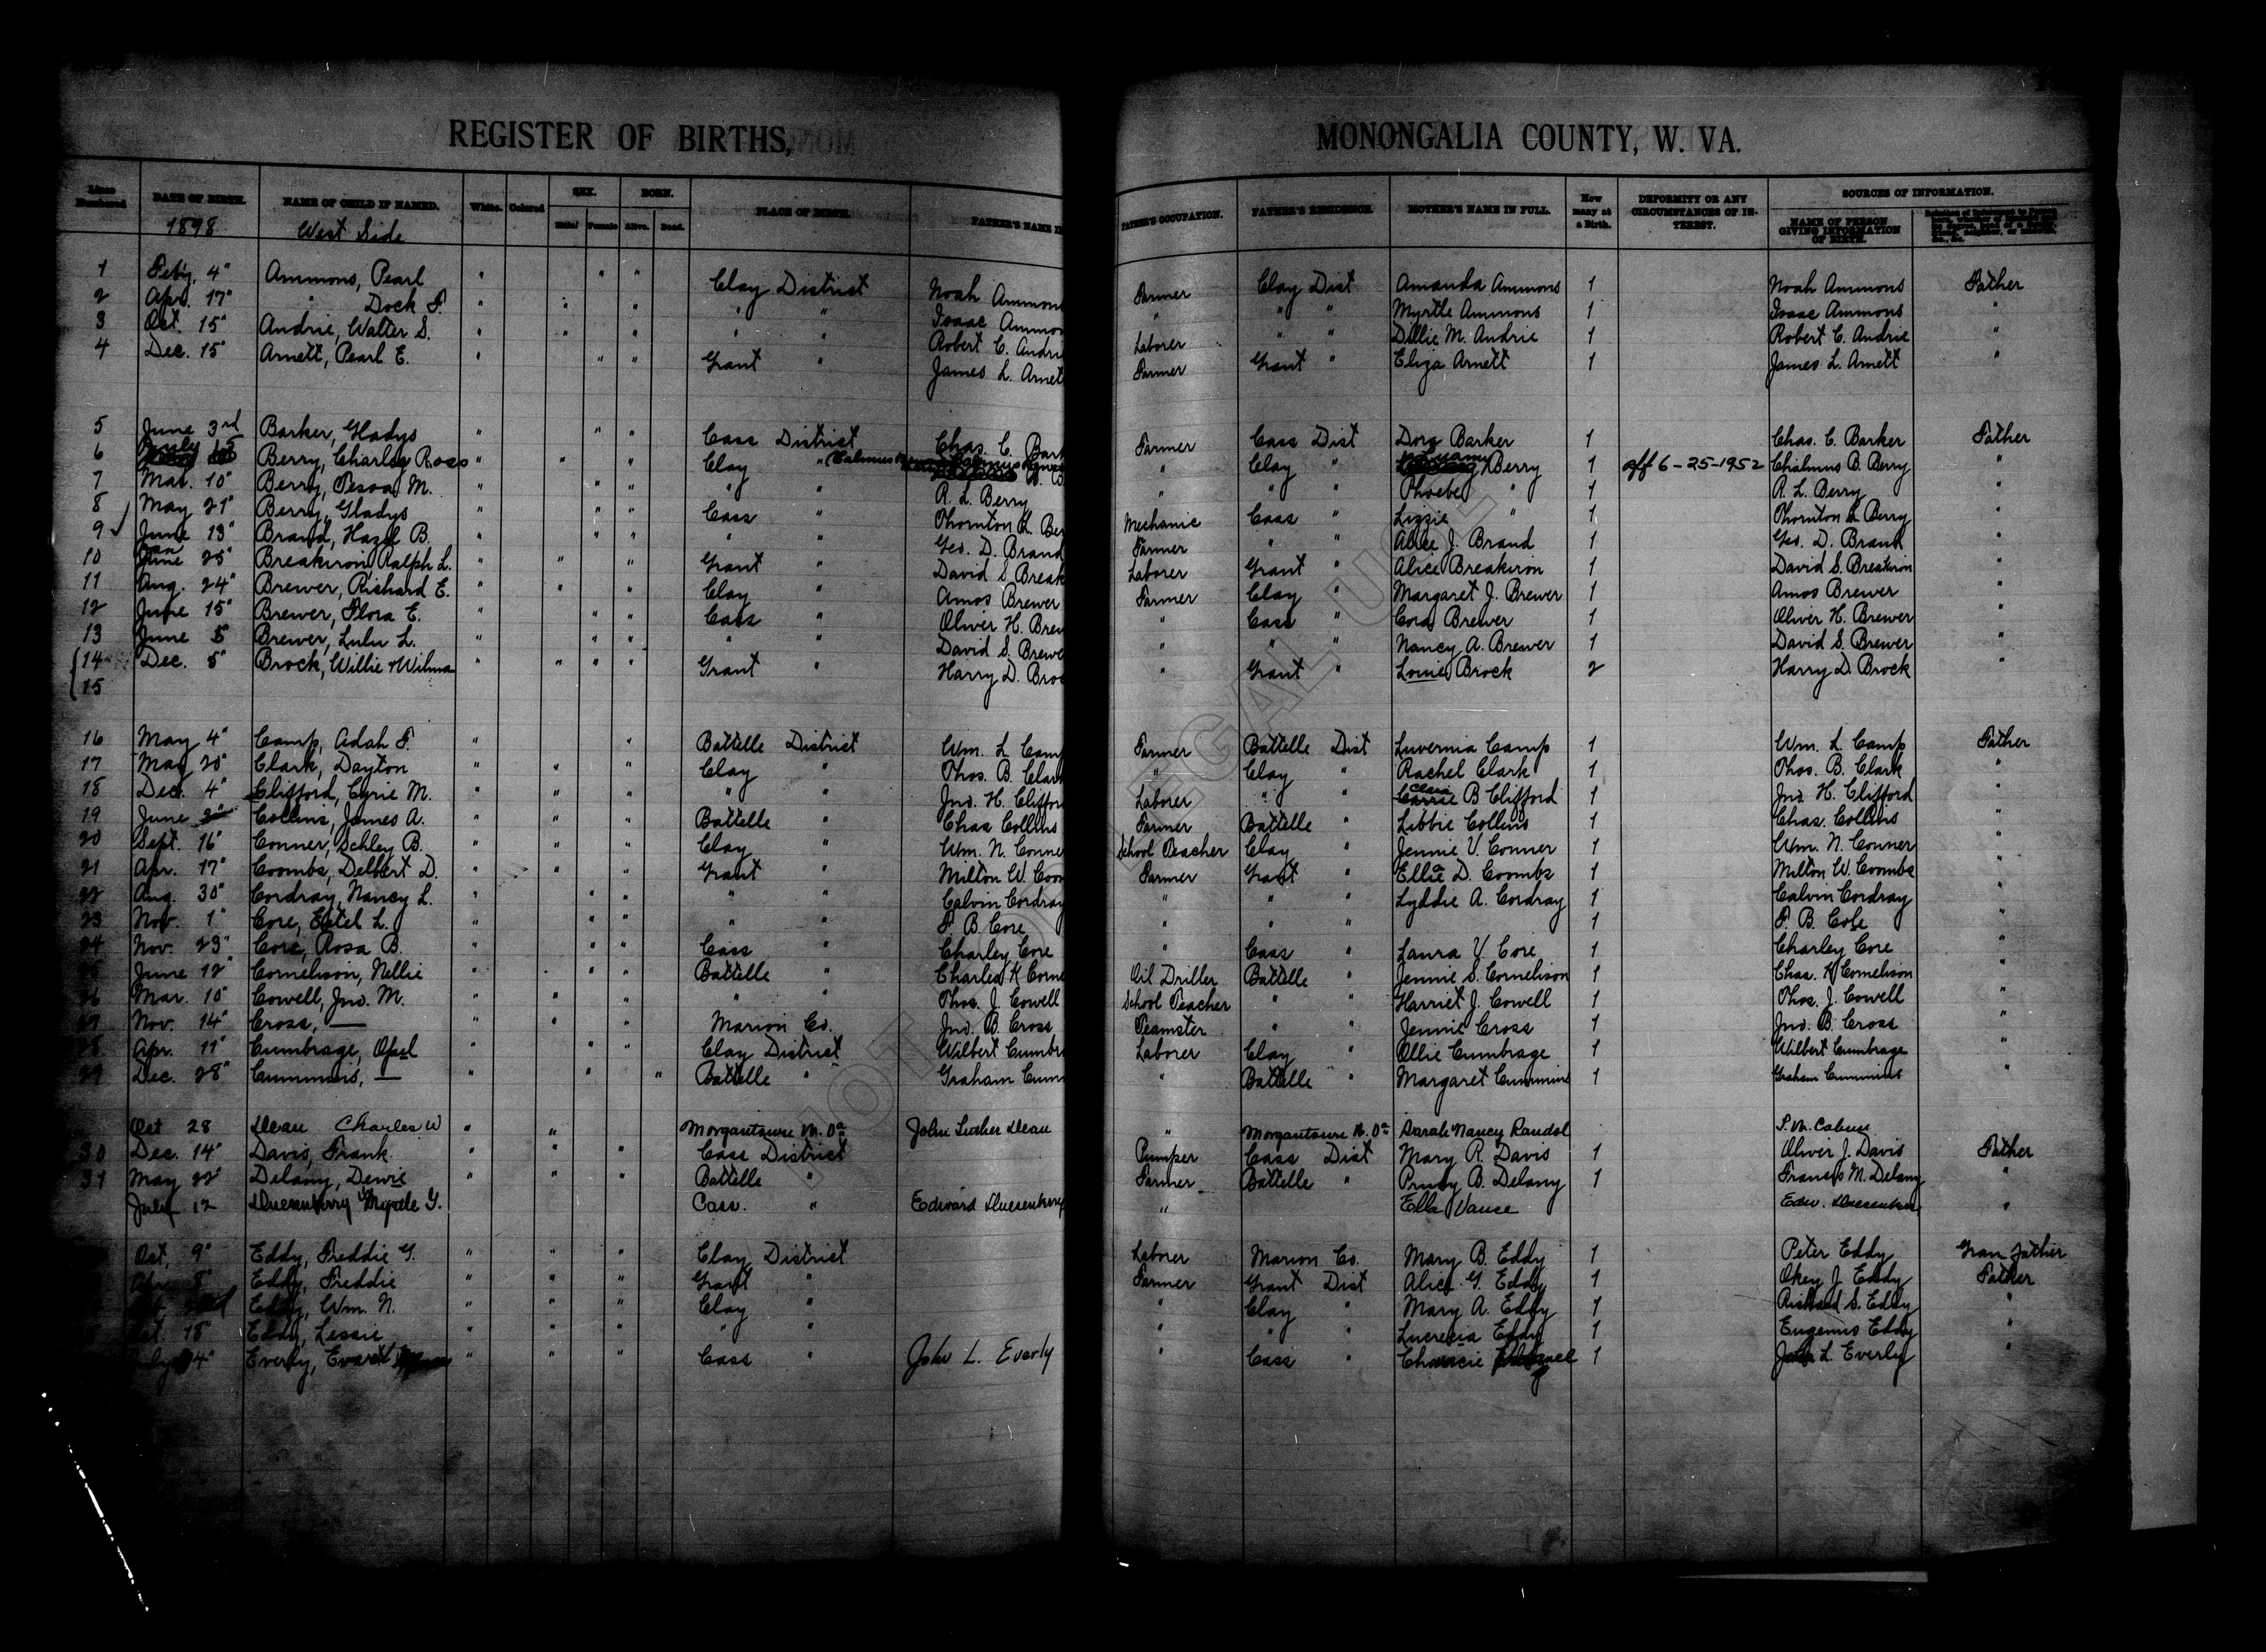 REGISTER OF BIRTHS, MONONGALIA COUNTY, W. VA.
Lines Numbered DATE OF BIRTH. NAME OF CHILD IF NAMED. White. Colored SEX. Male Female BORN. Alive. Dead. PLACE OF BIRTH. FATHER'S NAME IN FATHER'S OCCUPATION. FATHER'S RESIDENCE. MOTHER'S NAME IN FULL. How many at a Birth. DEFORMITY OR ANY CIRCUMSTANCES OF INTEREST. SOURCES OF INFORMATION. NAME OF PERSON GIVING INFORMATION OF BIRTH.
1898 West Side
1 Feb'y, 4" Ammons, Pearl " " " Clay District Noah Ammons Farmer Clay Dist Amanda Ammons 1 Noah Ammons Father
2 Apr. 17" " Dock F. " " " " " Isaac Ammo " " " Myrtle Ammons 1 Isaac Ammons "
3 Oct. 15" Andrie, Walter S. " " " " " Robert C. Andri Laborer " " Dillie M. Andrie 1 Robert C. Andrie "
4 Dec. 15" Arnett, Pearl E. " " " Grant " James L. Arnet Farmer Grant " Eliza Arnett 1 James L. Arnett "
5 June 3rd Barker, Gladys " " " Cass District Chas. C. Bark Farmer Cass Dist Dora Barker 1 Chas. C. Barker Father
6 Berry, Charley Ross " " " Clay " " Clay " Berry 1 aff 6-25-1952 Chalmus B. Berry "
7 Mar. 10" Berry, Tesoa M. " " " " " R. L. Berry " " " Phoebe " 1 R. L. Berry "
8 May 21" Berry, Gladys " " " Cass " Thornton L. Ber Mechanic Cass " Lizzie " 1 Thornton L. Berry "
9 June 13" Brand, Hazel B. " " " " " Geo. D. Brand Farmer " " Alice J. Brand 1 Geo. D. Brand "
10 Jan 25" Breakiron, Ralph L. " " " Grant " David S. Break Laborer Grant " Alice Breakiron 1 David S. Breakiron "
11 Aug. 24" Brewer, Richard E. " " " Clay " Amos Brewer Farmer Clay " Margaret J. Brewer 1 Amos Brewer "
12 June 15" Brewer, Flora E. " " " Cass " Oliver H. Brew " Cass " Cora Brewer 1 Oliver H. Brewer "
13 June 5" Brewer, Lulu L. " " " " " David S. Brewe " " " Nancy A. Brewer 1 David S. Brewer "
14 Dec. 5" Brock, Willie & Wilma " " " " Grant " Harry D. Broc " Grant " Louie Brock 2 Harry D. Brock "
15
16 May 4" Camp, Adah F. " " Battelle District Wm. L. Camp Farmer Battelle Dist Luvernia Camp 1 Wm. L. Camp Father
17 May 20" Clark, Dayton " " " Clay " Thos. B. Clark " Clay " Rachel Clark 1 Thos. B. Clark "
18 Dec. 4" Clifford, Cyrie M. " " " " " Jno. H. Cliffor Laborer " " B Clifford 1 Jno. H. Clifford "
19 June 2" Collins, James A. " " " Battelle " Chas Collins Farmer Battelle " Libbie Collins 1 Chas. Collins "
20 Sept. 16" Conner, Schley B. " " " Clay " Wm. N. Conne School Teacher Clay " Jennie V. Conner 1 Wm. N. Conner "
21 Apr. 17" Coombs, Delbert D. " " " Grant " Milton W. Coom Farmer Grant " Ella D. Coombs 1 Milton W. Coombs "
22 Aug. 30" Cordray, Nancy L. " " " " " Calvin Cordray " " " Lyddie A. Cordray 1 Calvin Cordray "
23 Nov. 1" Core, Estel L. " " " " " F. B. Core " " " 1 F. B. Core "
24 Nov. 23" Core, Rosa B. " " " Cass " Charley Core " Cass " Laura V. Core 1 Charley Core "
25 June 12" Cornelison, Nellie " " " Battelle " Charles K Corne Oil Driller Battelle " Jennie S. Cornelison 1 Chas. K Cornelison "
26 Mar. 10" Cowell, Jno. M. " " " " " Thos. J. Cowell School Teacher " " Harriet J. Cowell 1 Thos. J. Cowell "
27 Nov. 14" Cross, — " " " Marion Co. Jno. B. Cross Teamster " " Jennie Cross 1 Jno. B. Cross "
28 Apr. 11" Cumbrage, Opal " " " Clay District Wilbert Cumbr Laborer Clay " Ollie Cumbrage 1 Wilbert Cumbrage "
29 Dec. 28" Cummins, — " " " Battelle " Graham Cum " Battelle " Margaret Cummins 1 Graham Cummins "
Oct 28 Dean Charles W " " Morgantown W. Va John Luther Dean " Morgantown W. Va Sarah Nancy Randol
30 Dec. 14" Davis, Frank " " " Cass District Pumper Cass Dist Mary R. Davis 1 Oliver J. Davis Father
31 May 22" Delany, Dewie " " " Battelle " Farmer Battelle " B. Delany 1 Francis M. Delany "
July 12 Duesenberry G. Cass. " Edward Duesenberry " Ella Vance Edw. Duesenberry "
Oct, 9" Eddy, Freddie G. " " " Clay District Laborer Marion Co. Mary B. Eddy 1 Peter Eddy Gran father
8" Eddy, Freddie " " " Grant " Farmer Grant Dist Alice G. Eddy 1 Okey J. Eddy Father
Eddy, Wm. N. " " " Clay " " Clay " Mary A. Eddy 1 Richard S. Eddy "
Oct. 18" Eddy, Lessie " " " " " " " " Lucrecia Eddy 1 Eugenus Eddy "
4" Everly, Evaret " " " Cass " John L. Everly " Cass " 1 L. Everly "
NOT LEGAL USE